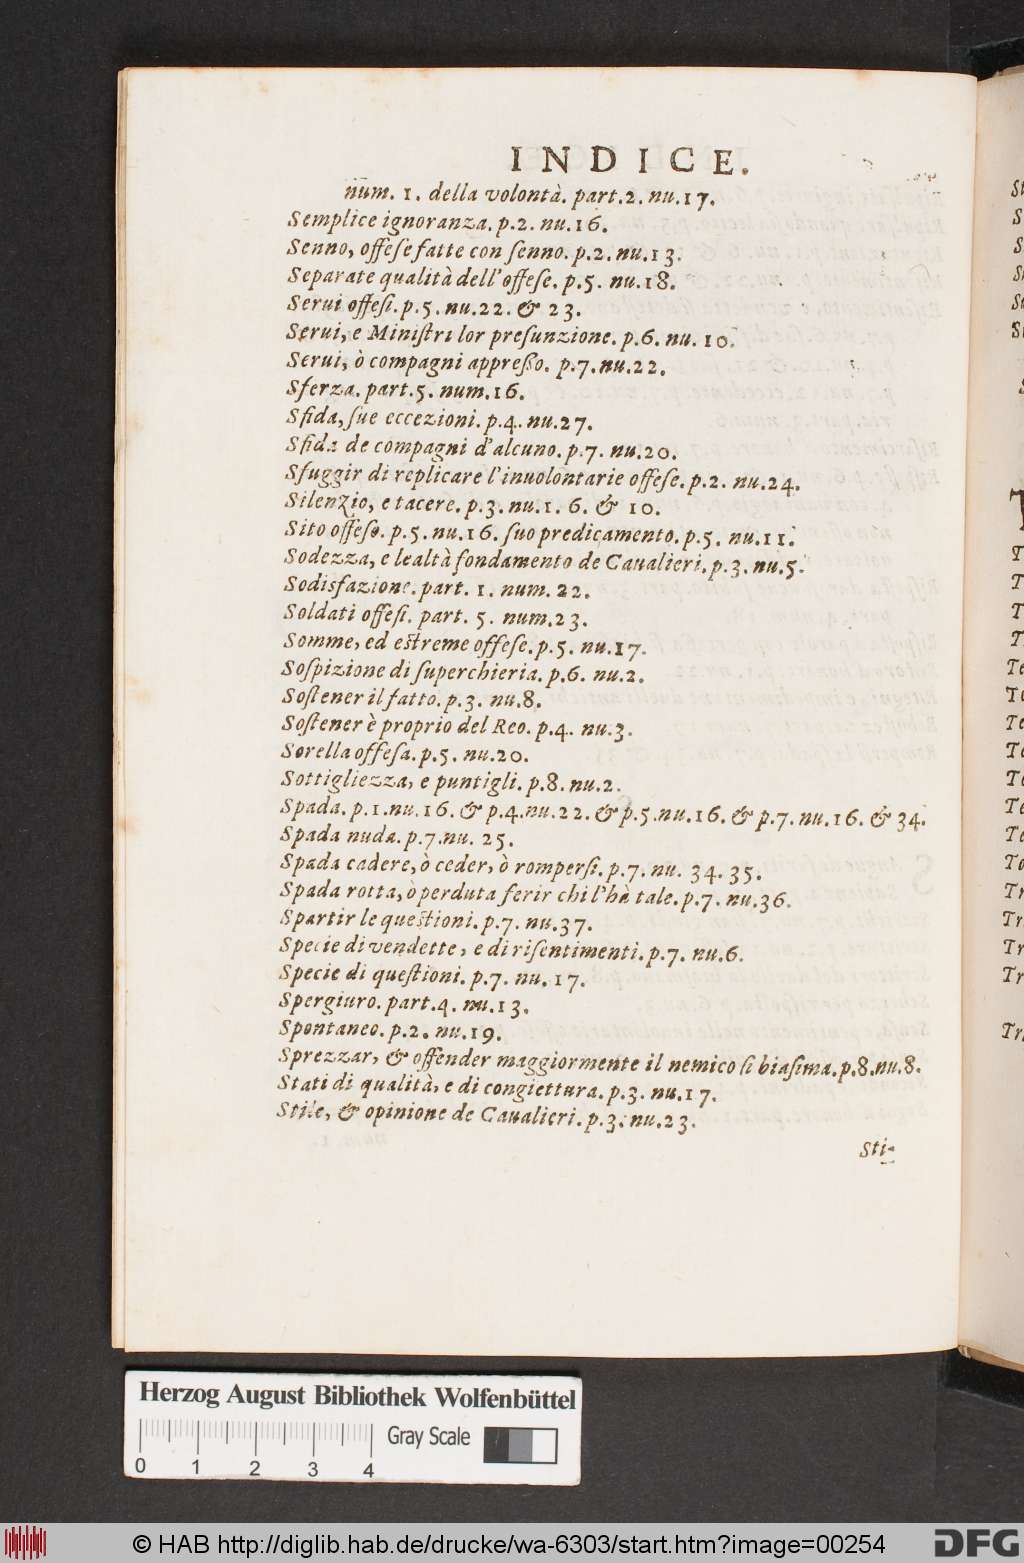 INDICE.
num. 1. della volontà. part.2. nu.17.
Semplice ignoranza. p.2. nu.16.
Senno, offese fatte con senno. p.2. nu.13.
Separate qualità dell'offese. p.5. nu.18.
Serui offesi. p.5. nu.22. & 23.
Serui, e Ministri lor presunzione. p.6. nu. 10.
Serui, ò compagni appresso. p.7. nu.22.
Sferza. part.5. num.16.
Sfida, sue eccezioni. p.4. nu.27.
Sfida de compagni d'alcuno. p.7. nu.20.
Sfuggir di replicare l'inuolontarie offese. p.2. nu.24.
Silenzio, e tacere. p.3. nu.1. 6. & 10.
Sito offeso. p.5. nu.16. suo predicamento. p.5. nu.11.
Sodezza, e lealtà fondamento de Caualieri. p.3. nu.5.
Sodisfazione. part. 1. num. 22.
Soldati offesi. part. 5. num.23.
Somme, ed estreme offese. p.5. nu.17.
Sospizione di superchieria. p.6. nu.2.
Sostener il fatto. p.3. nu.8.
Sostener è proprio del Reo. p.4. nu.3.
Sorella offesa. p.5. nu.20.
Sottigliezza, e puntigli. p.8. nu.2.
Spada. p.1. nu.16. & p.4. nu.22. & p.5. nu.16. & p.7. nu.16. & 34.
Spada nuda. p.7. nu. 25.
Spada cadere, ò ceder, ò rompersi. p.7. nu. 34. 35.
Spada rotta, ò perduta ferir chi l'hà tale. p.7. nu.36.
Spartir le questioni. p.7. nu.37.
Specie di vendette, e di risentimenti. p.7. nu.6.
Specie di questioni. p.7. nu. 17.
Spergiuro. part.4. nu.13.
Spontaneo. p.2. nu.19.
Sprezzar, & offender maggiormente il nemico si biasima. p.8. nu.8.
Stati di qualità, e di congiettura. p.3. nu.17.
Stile, & opinione de Caualieri. p.3. nu.23.
Sti-
Herzog August Bibliothek Wolfenbüttel
Gray Scale
0 1 2 3 4
© HAB http://diglib.hab.de/drucke/wa-6303/start.htm?image=00254
DFG